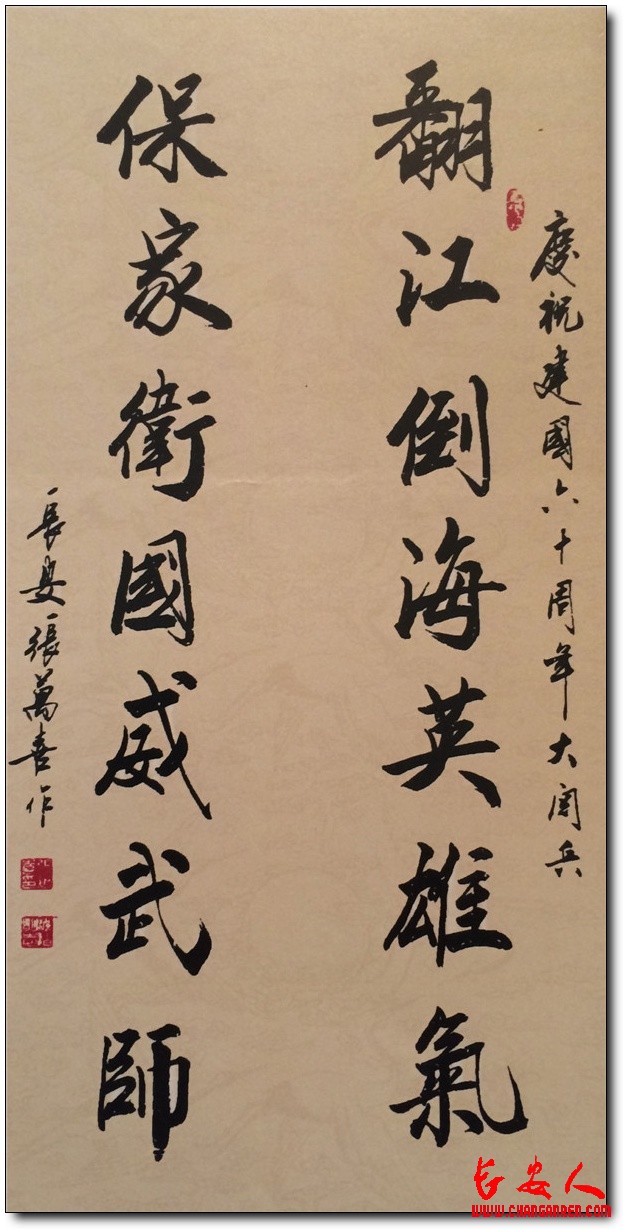 慶祝建國六十周年大閱兵
翻江倒海英雄氣
保家衛國威武師
長安張萬喜作
长安人
www.changanren.com